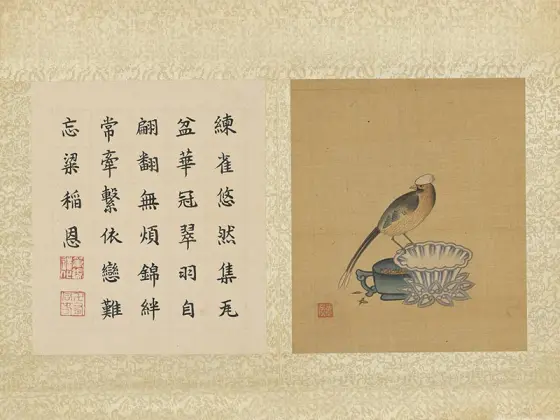 練雀悠然集瓦
盆華冠翠羽自
翩翻無煩錦絆
常牽繫依戀難
忘粱稻恩